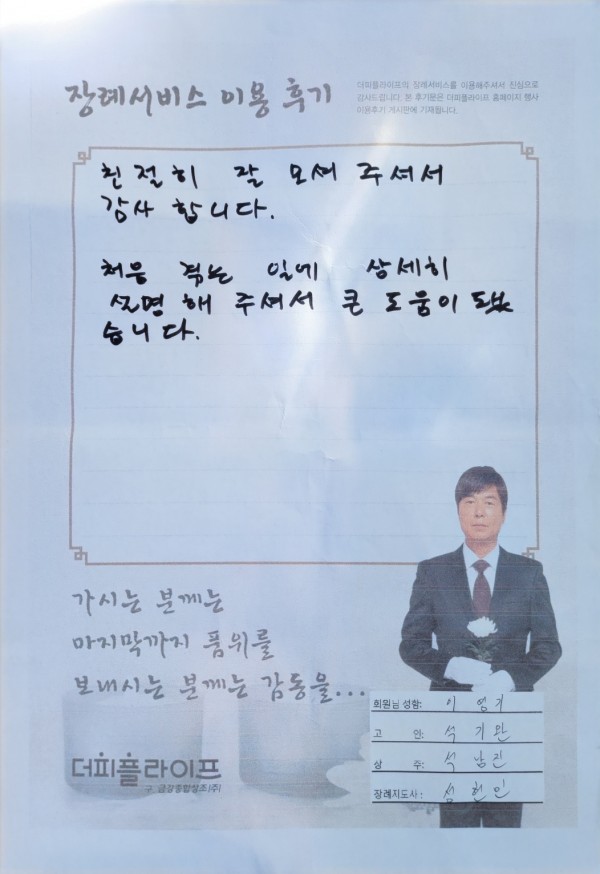 장례서비스 이용 후기
더피플라이프의 장례서비스를 이용해주셔서 진심으로
감사드립니다. 본 후기문은 더피플라이프 홈페이지 행사
이용후기 게시판에 기재됩니다.
친절히 잘 모셔 주셔서
감사 합니다.
처음 겪는 일에 상세히
설명 해 주셔서 큰 도움이 되었
습니다.
가시는 분께는
마지막까지 품위를
보내시는 분께는 감동을...
회원님 성함: 이영기
고 인: 석기완
상 주: 석남진
장례지도사: 심현인
더피플라이프
구. 금강종합상조(주)